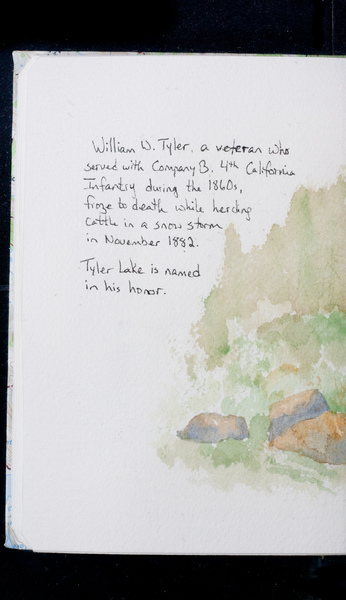 William W. Tyler, a veteran who
served with Company B. 4th California
Infantry during the 1860s,
froze to death while herding
cattle in a snow storm
in November 1882.
Tyler Lake is named
in his honor.